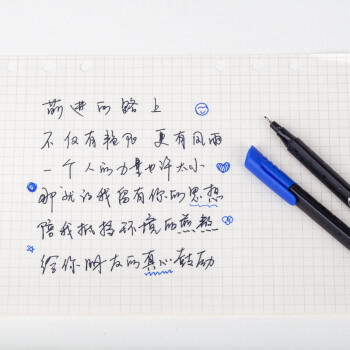 前进的路上
不仅有艳阳 更有风雨
一个人的力量也许太小
那就让我留有你的思想
陪我抵挡环境的煎熬
给你朋友的真心鼓励